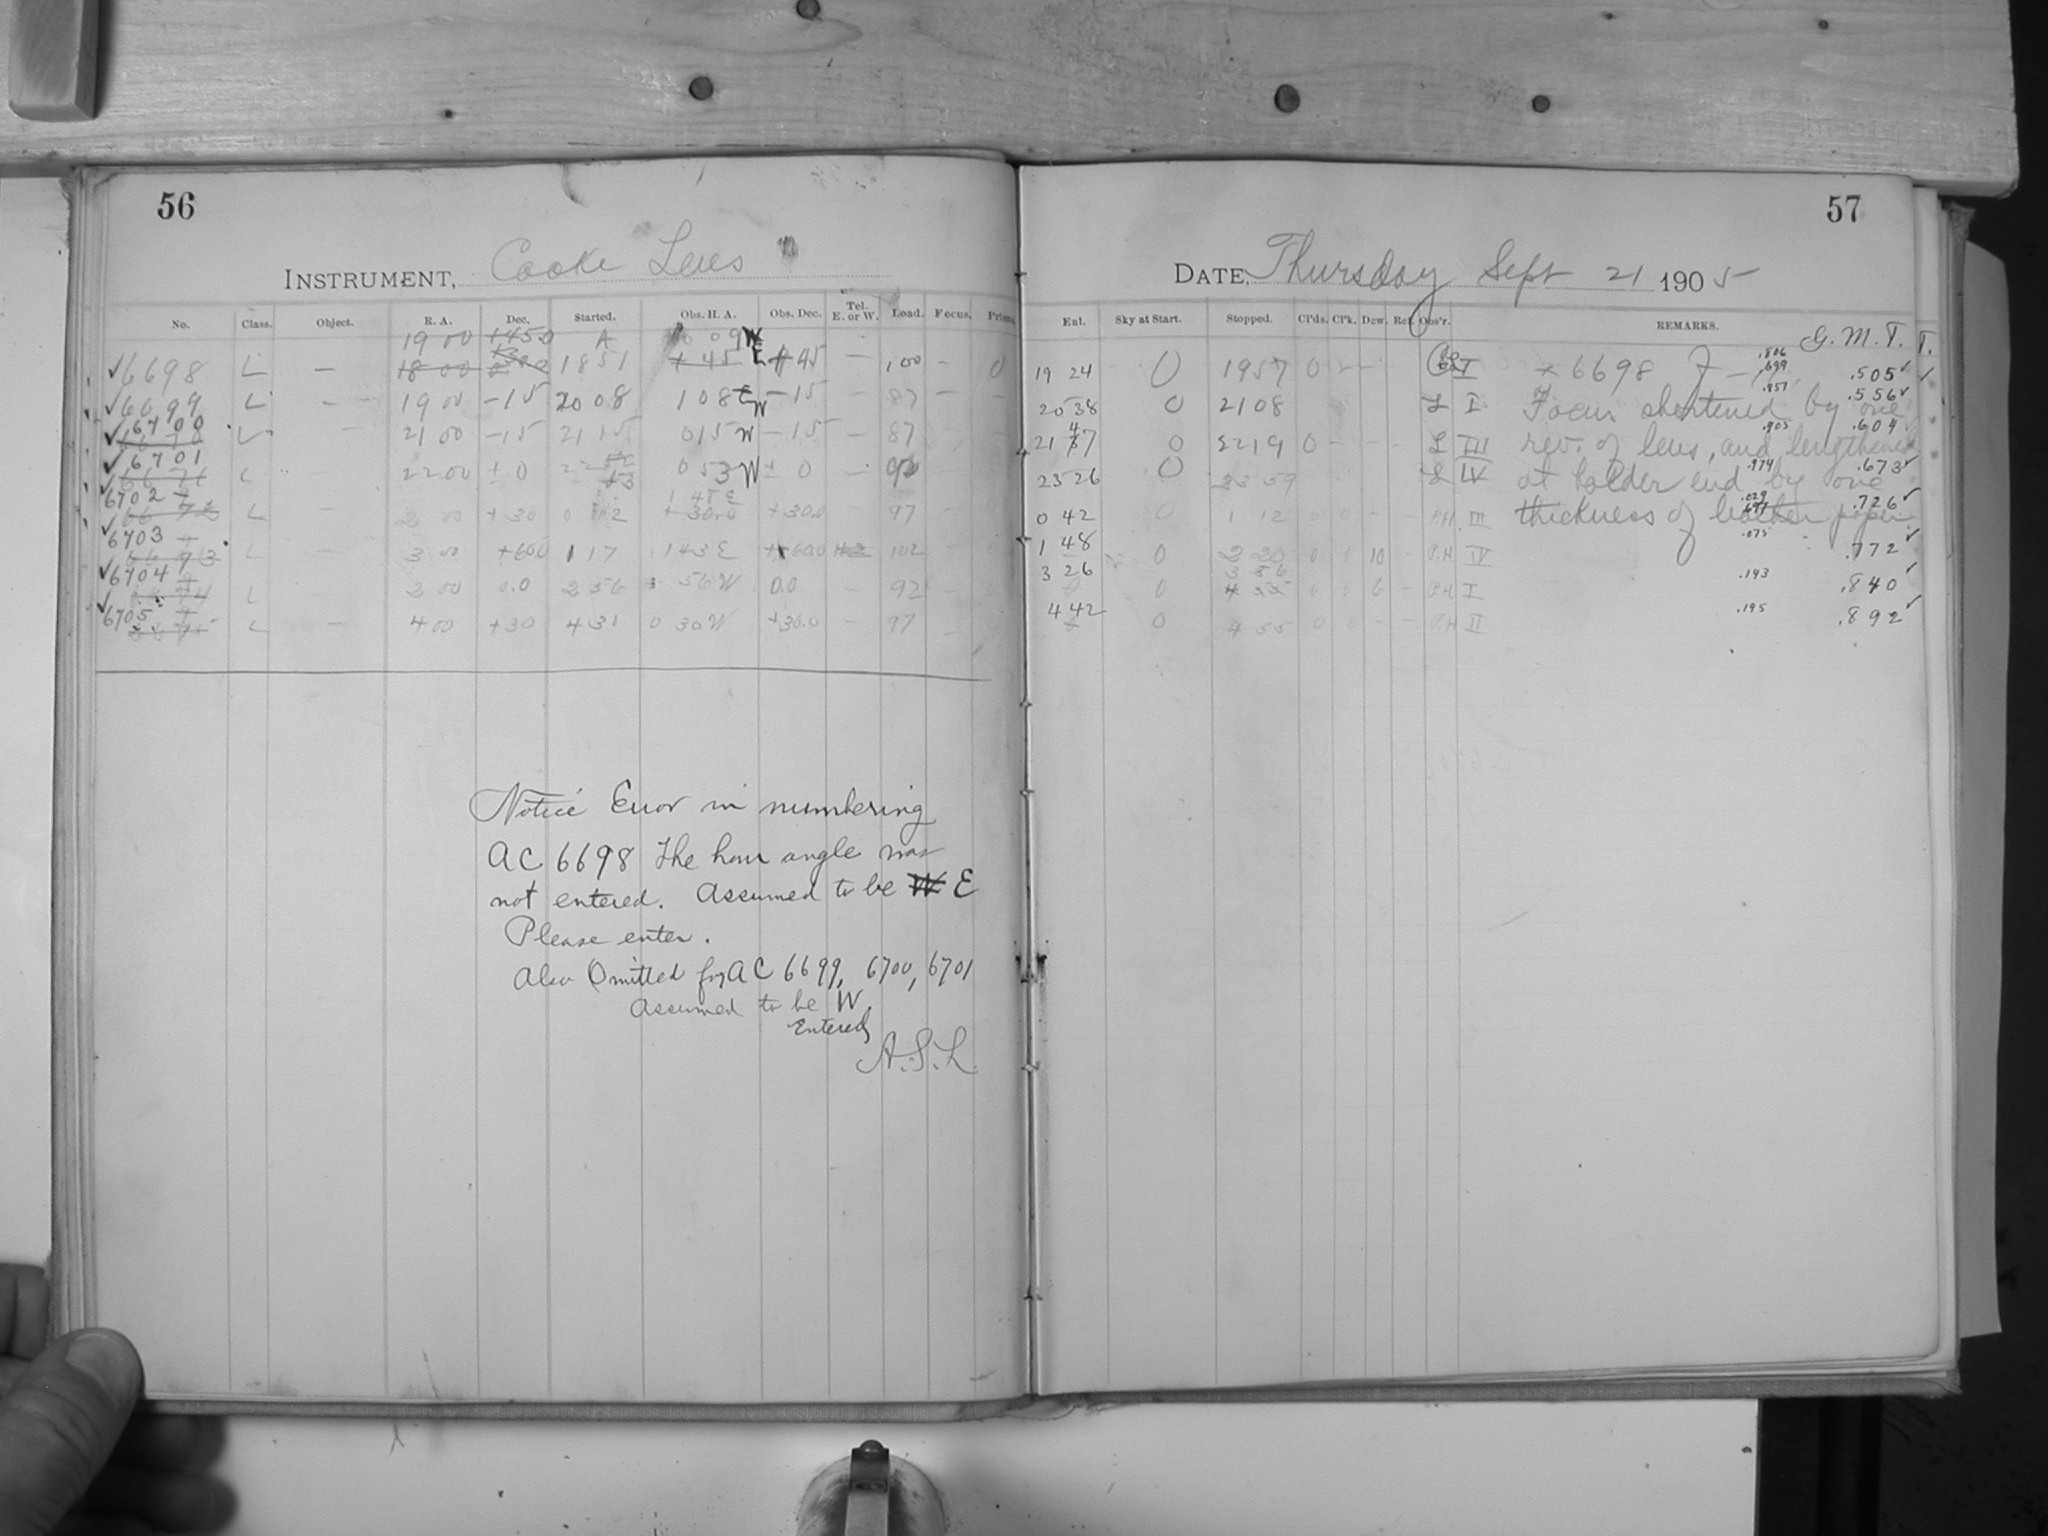 56
INSTRUMENT, Cooke Lens
No. Class. Object. R. A. Dec. Started. Obs. H. A. Obs. Dec. Tel. E. or W. Load. Focus. Prism.
19 00 +45.0 A 0 09 W
✓6698 L — 18 00 1851 + 45 E + 45 — 100 0
✓6699 L — 19 00 -15 2008 1 08 E W -15 — 87 — —
✓6700 L — 21 00 -15 21 15 0 15 W -15 — 87 — —
✓6701 L 22 00 ± 0 0 53 W ± 0 — 90
✓6702 L — 1 48 E
+30 0 12 +30.0 +30.0 — 97
✓6703 L — 3 00 +60.0 1 17 1 43 E +60.0 102
✓6704 L — 0.0 2 56 56 W 0.0 — 92
✓6705 L — 4 00 +30 4 31 0 30 W +30.0 — 97
Notice Error in numbering
AC 6698 The hour angle was
not entered. Assumed to be W E
Please enter.
Also Omitted for AC 6699, 6700, 6701
Assumed to be W.
Entered
A.S.L.
57
DATE, Thursday Sept 21 1905
Ent. Sky at Start. Stopped. Cl'ds. Cl'k. Dew. Ref. Obs'r. REMARKS. G. M. T.
19 24 0 1957 0 — — I × 6698 F — .806 .699 .505 ✓
20 38 0 2108 L I Focus shortened by one .857 .556 ✓
21 47 0 2219 0 — — — L III rev. of lens, and lengthened .905 .604 ✓
23 26 0 23 59 L IV at holder end by one .974 .673 ✓
0 42 0 1 12 0 0 — — P.H. III thickness of leather paper .029 .726 ✓
1 48 0 2 20 0 1 10 — P.H. IV .075 .772 ✓
3 26 0 0 0 6 — P.H. I .143 .840 ✓
4 42 0 4 55 0 0 — — P.H. II .195 .892 ✓